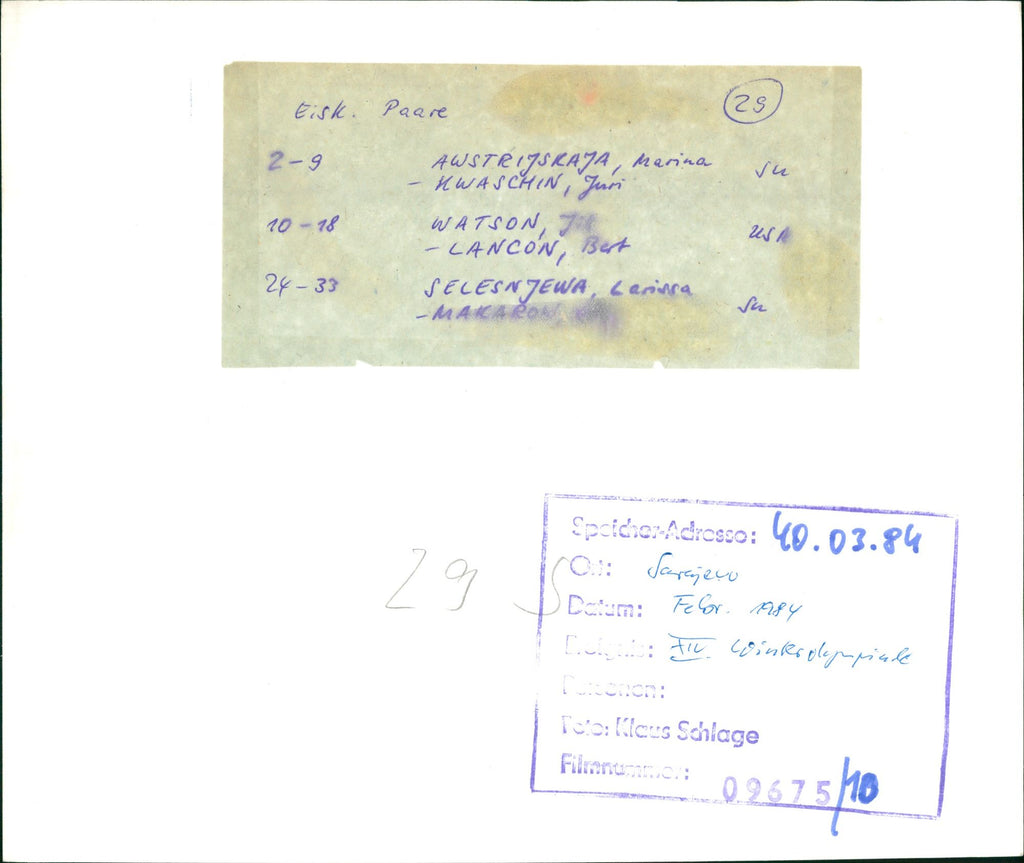 Eisk. Paare
29
2-9 AWSTRIJSKAJA, Marina SU
- KWASCHIN, Juri
10-18 WATSON, Jill USA
- LANCON, Bert
24-33 SELESNJEWA, Larissa SU
- MAKAROW,
29 S
Speicher-Adresse: 40.03.84
Ort: Sarajevo
Datum: Febr. 1984
Ereignis: XIV. Winterolympiade
Personen:
Foto: Klaus Schlage
Filmnummer: 09675/10